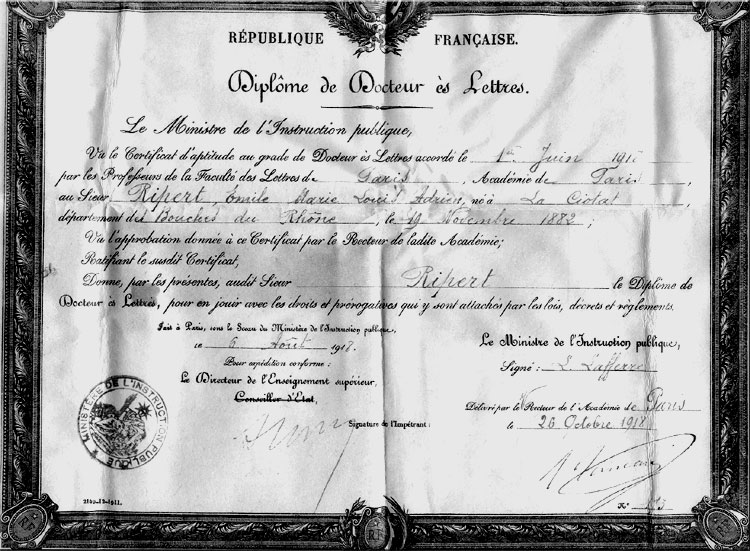 RÉPUBLIQUE FRANÇAISE.
Diplôme de Docteur ès Lettres.
Le Ministre de l'Instruction publique,
Vu le Certificat d'aptitude au grade de Docteur ès Lettres accordé le 1er Juin 1918
par les Professeurs de la Faculté des Lettres de Paris, Académie de Paris
au Sieur Ripert, Emile Marie Louis Adrien, né à La Ciotat
département des Bouches du Rhône, le 19 Novembre 1882;
Vu l'approbation donnée à ce Certificat par le Recteur de ladite Académie;
Ratifiant le susdit Certificat,
Donne, par les présentes, audit Sieur Ripert le Diplôme de
Docteur ès Lettres, pour en jouir avec les droits et prérogatives qui y sont attachés par les lois, décrets et règlements.
Fait à Paris, sous le Sceau du Ministère de l'Instruction publique,
le 6 Août 1918.
Pour expédition conforme:
Le Directeur de l'Enseignement supérieur,
Conseiller d'Etat,
Le Ministre de l'Instruction publique,
Signé: L Lafferre
Délivré par le Recteur de l'Académie de Paris
le 26 Octobre 1918
Signature de l'Impétrant:
MINISTÈRE DE L'INSTRUCTION PUBLIQUE
2140-12-1911.
N°
RF